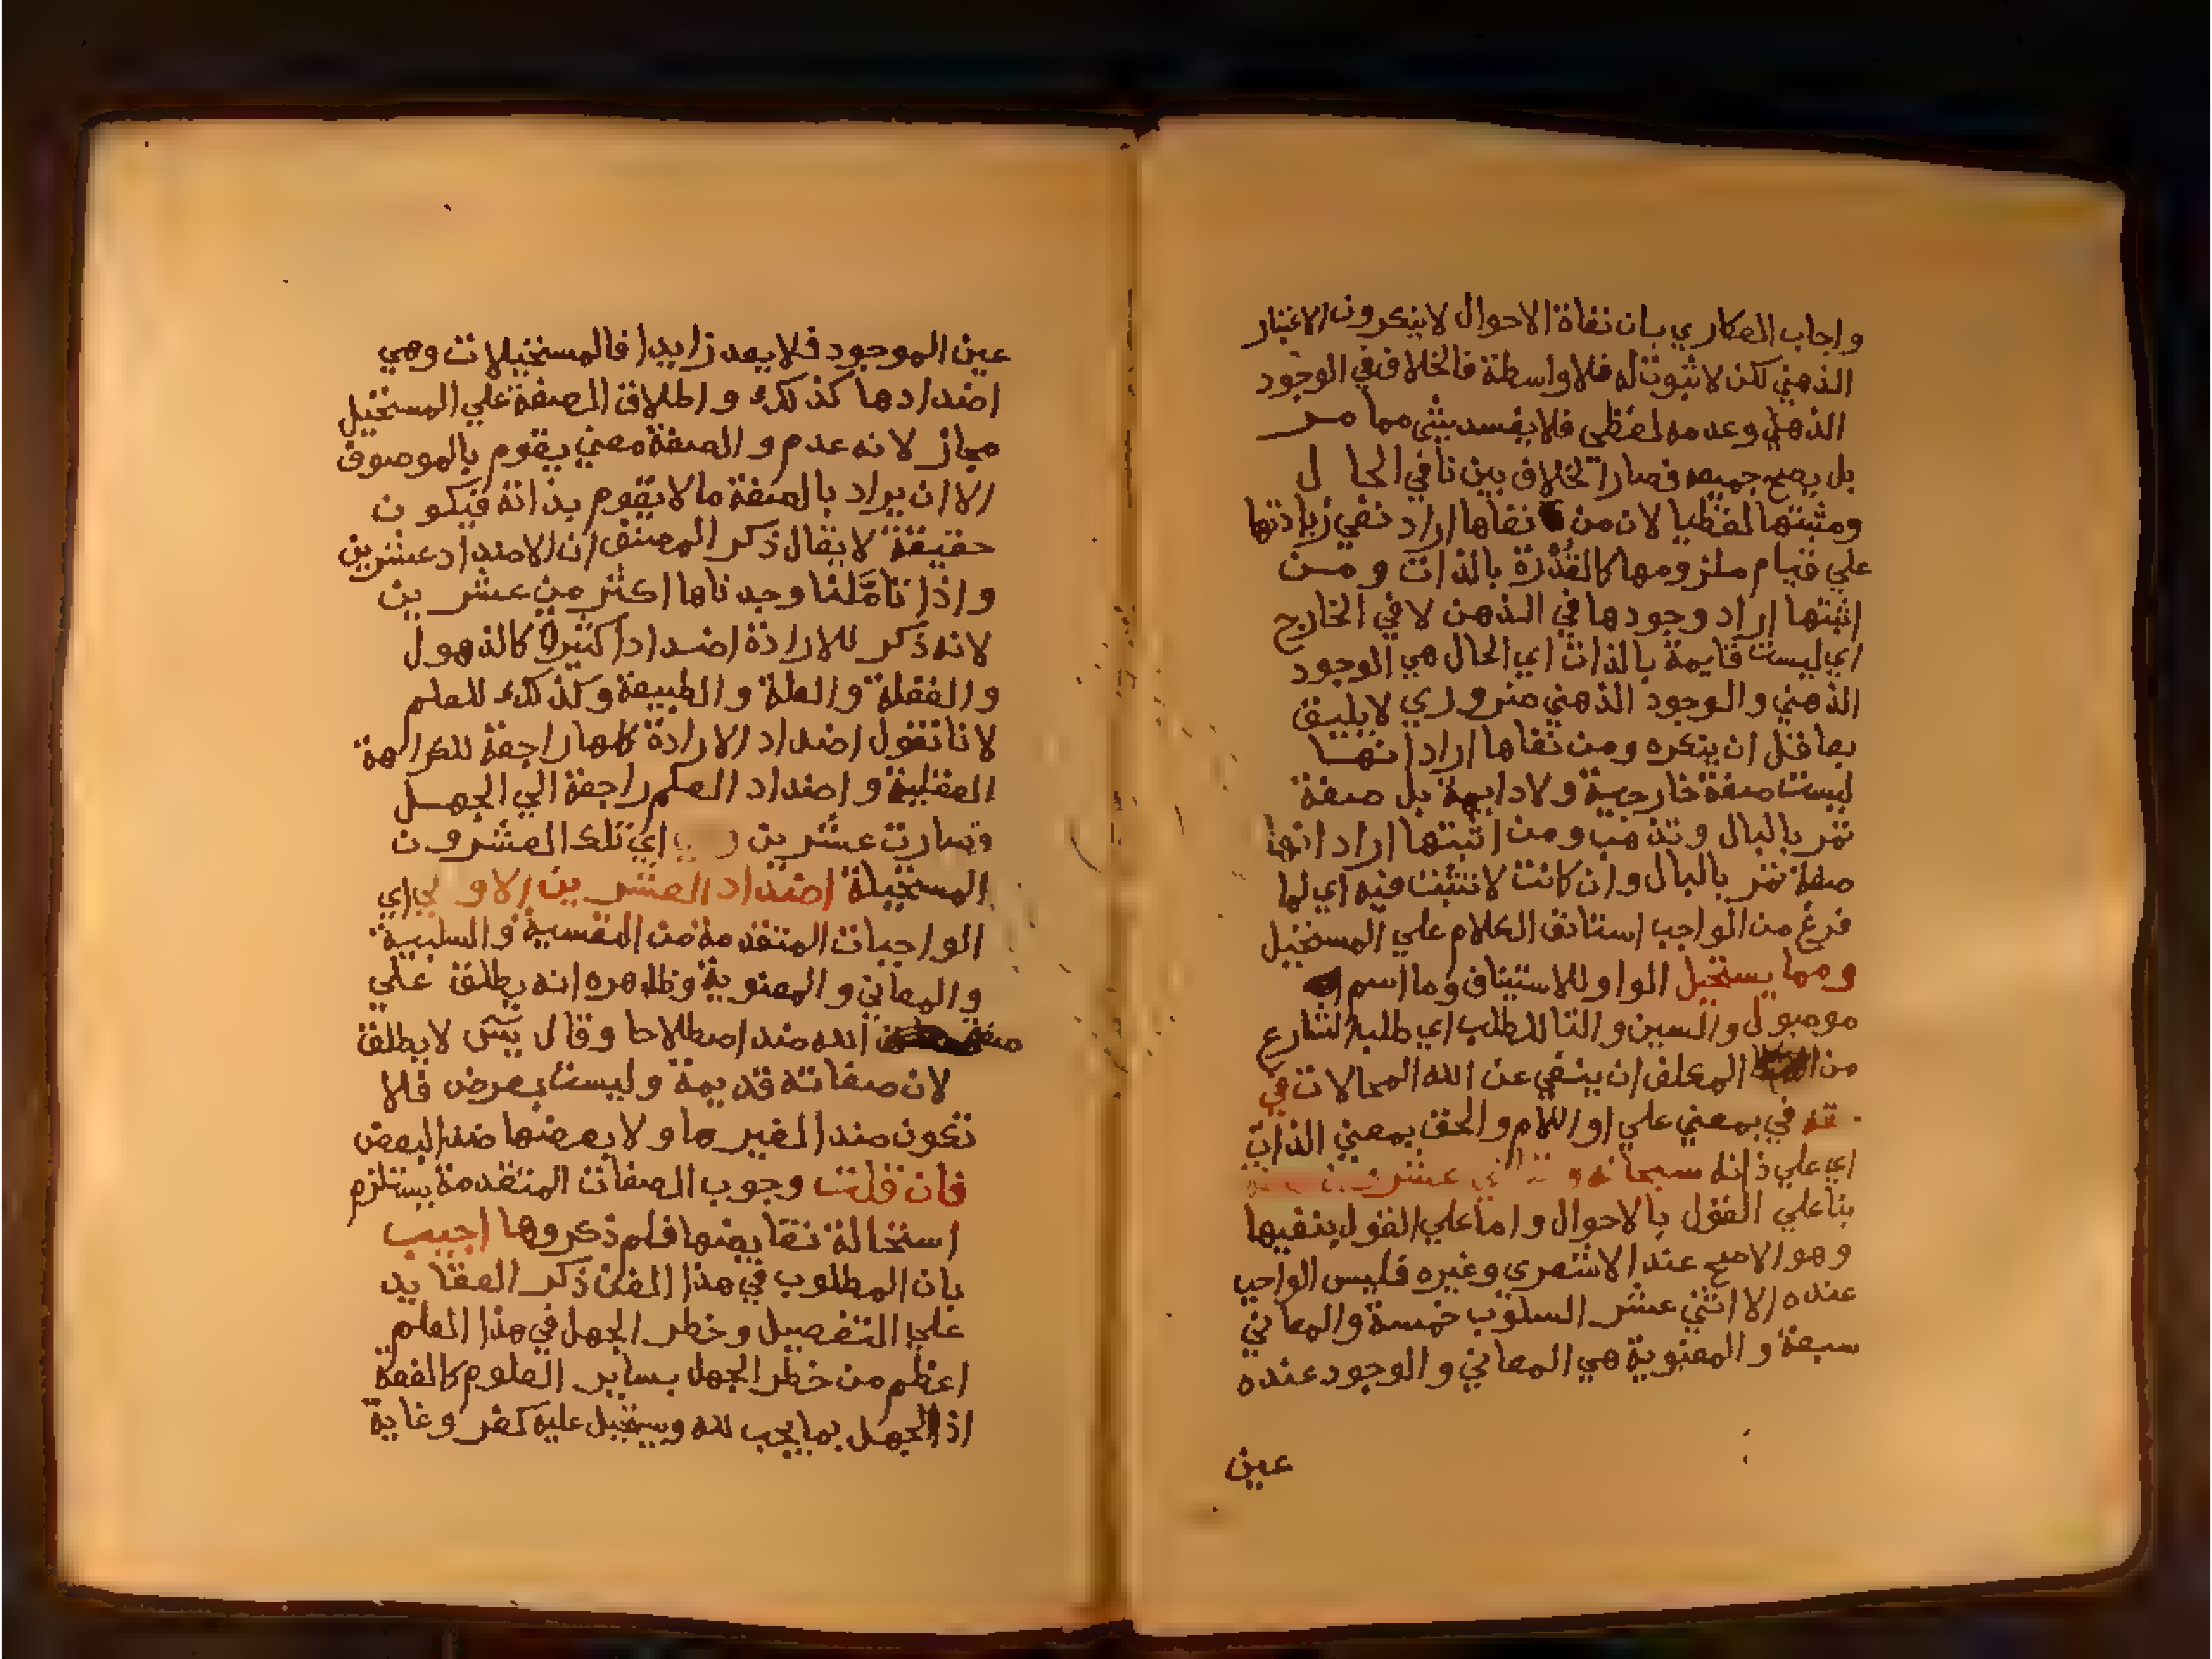 واجاب العكاري بان نفاة الاحوال لا ينكرون الاعتبار
الذهني لكن لا ثبوت له فلا واسطة فالخلاف في الوجود
الذهني وعدمه لفظي فلا يفسد بشي مما مر
بل يصح جميعه فصار الخلاف بين نافي الحا ل
ومثبتها لفظيا لان من نفاها اراد نفي زيادتها
علي قيام ملزومها كالقدرة بالذات و مــن
اثبتها اراد وجودها في الذهن لا في الخارج
اي ليست قايمة بالذات اي الحال هي الوجود
الذهني والوجود الذهني ضروري لا يليق
بعاقل ان ينكره ومن نفاها اراد انهــا
ليست صفة خارجية ولا بل صفة
تمر بالبال وتذهب ومن اثبتها اراد انها
صفة تمر بالبال وان كانت لا تثبت فيه اي لما
فرغ من الواجب استانف الكلام علي المستحيل
ومما يستحيل الواو للاستيناف وما اسم
موصول والسين والتا للطلب اي طلب الشارع
من المكلف ان ينفي عن الله المحالات في
في بمعني علي او اللام والحق بمعني الذات
اي علي ذاته سبحانه و عشرون
بنا علي القول بالاحوال واما علي القول بنفيها
وهو الاصح عند الاشعري وغيره فليس الواجب
عنده الا اثني عشر السلوب خمسة والمعاني
سبعة والمعنوية هي المعاني والوجود عنده
عين
عين الموجود فلا يعد زايدا فالمستحيلات وهي
اضدادها كذلك واطلاق الصفة علي المستحيل
مجاز لانه عدم والصفة معني يقوم بالموصوف
الا ان يراد بالصفة ما لا يقوم بذاته فيكو ن
حقيقة لا يقال ذكر المصنف ان الاضداد عشرين
واذا تامّلنا وجدناها اكثر من عشر ين
لانه ذكر للارادة اضدادا كثيرة كالذهول
والغفلة والعلة والطبيعة وكذلك للعلم
لانا نقول اضداد الارادة كلها راجعة للكراهة
العقلية واضداد العلم راجعة الي الجهــل
فصارت عشرين اي تلك العشرو ن
المستحيلة اضداد العشر ين الاولي اي
الواجبات المتقدمة من النفسية والسلبية
والمعاني والمعنوية وظاهره انه يطلق علي
الله ضد اصطلاحا وقال يٓسٓ لا يطلق
لان صفاته قديمة وليست بعرض فلا
تكون ضدا لغيرها ولا بعضها ضد البعض
فان قلت وجوب الصفات المتقدمة يستلزم
استحالة نقايضها فلم ذكروها اجيب
بان المطلوب في هذا الفن ذكر العقا يد
علي التفصيل وخطر الجهل في هذا العلم
اعظم من خطر الجهل بساير العلوم كالفقه
اذ الجهل بما يجب لله ويستحيل عليه كفر وغاية